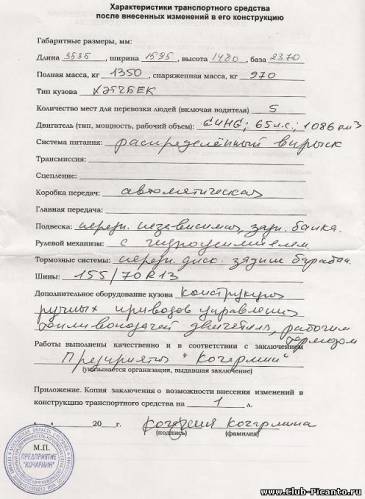 Характеристики транспортного средства
после внесенных изменений в его конструкцию
Габаритные размеры, мм:
Длина 3535, ширина 1595, высота 1480, база 2370
Полная масса, кг 1350, снаряженная масса, кг 970
Тип кузова ХЭТЧБЕК
Количество мест для перевозки людей (включая водителя) 5
Двигатель (тип, мощность, рабочий объем): G4HG; 65 л.с; 1086 см3
Система питания: распределённый впрыск
Трансмиссия:
Сцепление:
Коробка передач: автоматическая
Главная передача:
Подвеска: передн. независимая, задн. балка.
Рулевой механизм: с гидроусилителем
Тормозные системы: передн. диск. задние барабан
Шины: 155/70R13
Дополнительное оборудование кузова конструкция
ручных приводов управления
топливоподачей двигателя, рабочим
тормозом
Работы выполнены качественно и в соответствии с заключением
Предприятия "Кочармин"
(указывается организация, выдавшая заключение)
Приложение. Копия заключения о возможности внесения изменений в
конструкцию транспортного средства на 1 л.
20 г.
(подпись) (фамилия)
М.П.
ПРЕДПРИЯТИЕ
"КОЧАРМИН"
www.Club-Picanto.ru